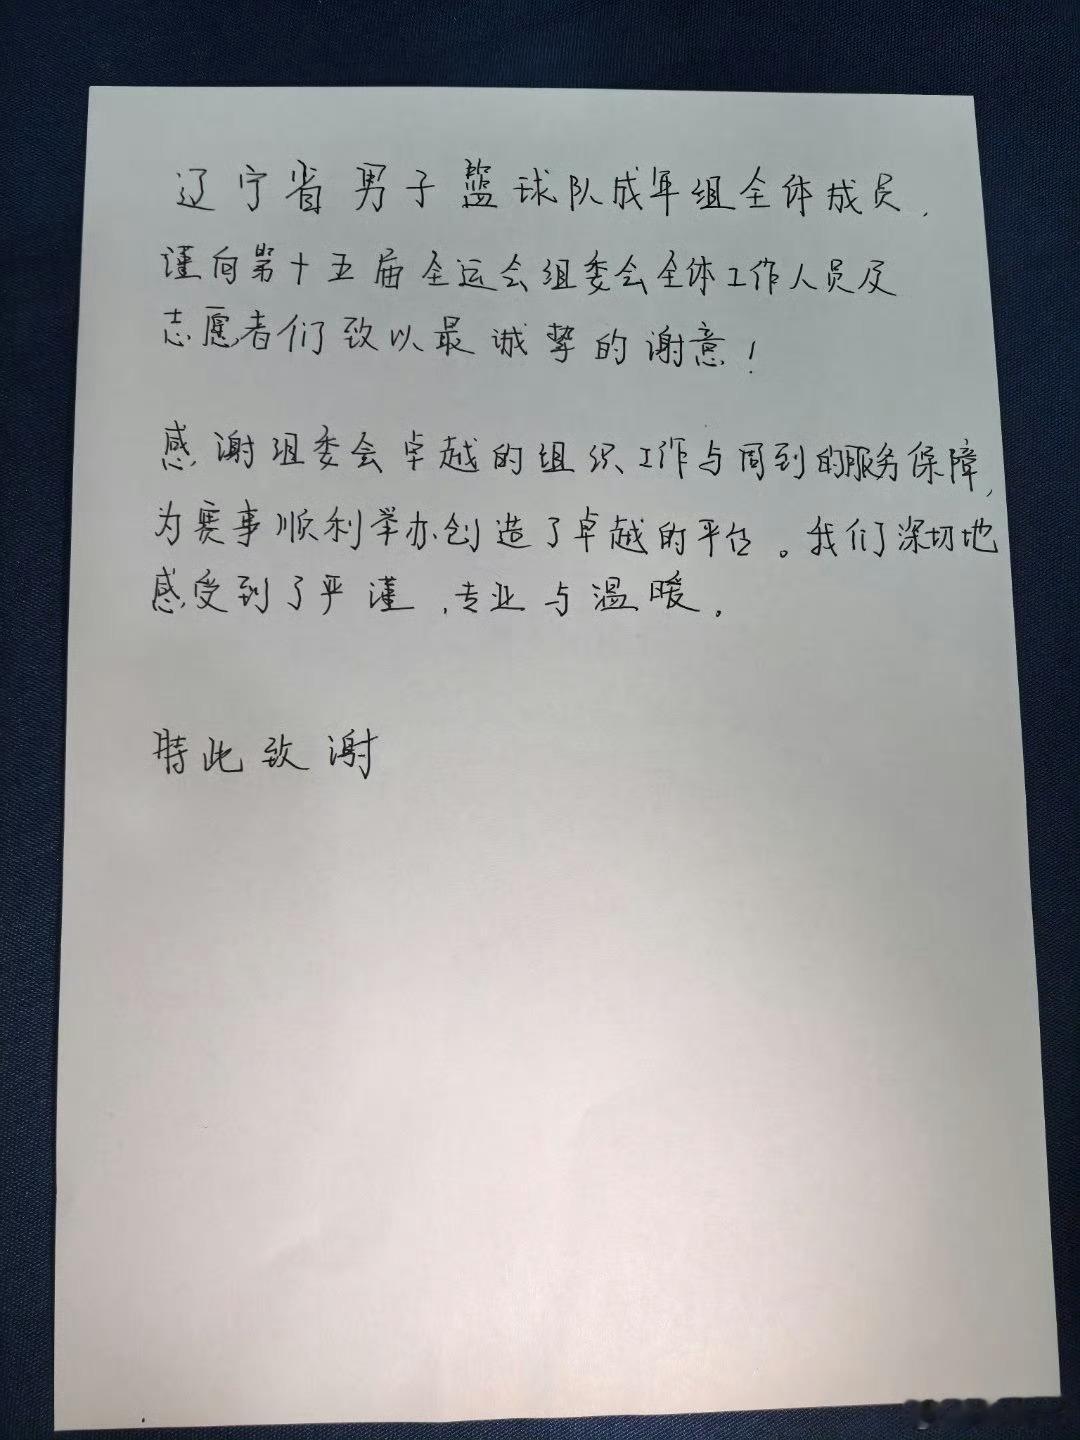 辽宁省男子篮球队成年组全体成员，
谨向第十五届全运会组委会全体工作人员及
志愿者们致以最诚挚的谢意！
感谢组委会卓越的组织工作与周到的服务保障，
为赛事顺利举办创造了卓越的平台。我们深切地
感受到了严谨、专业与温暖。
特此致谢